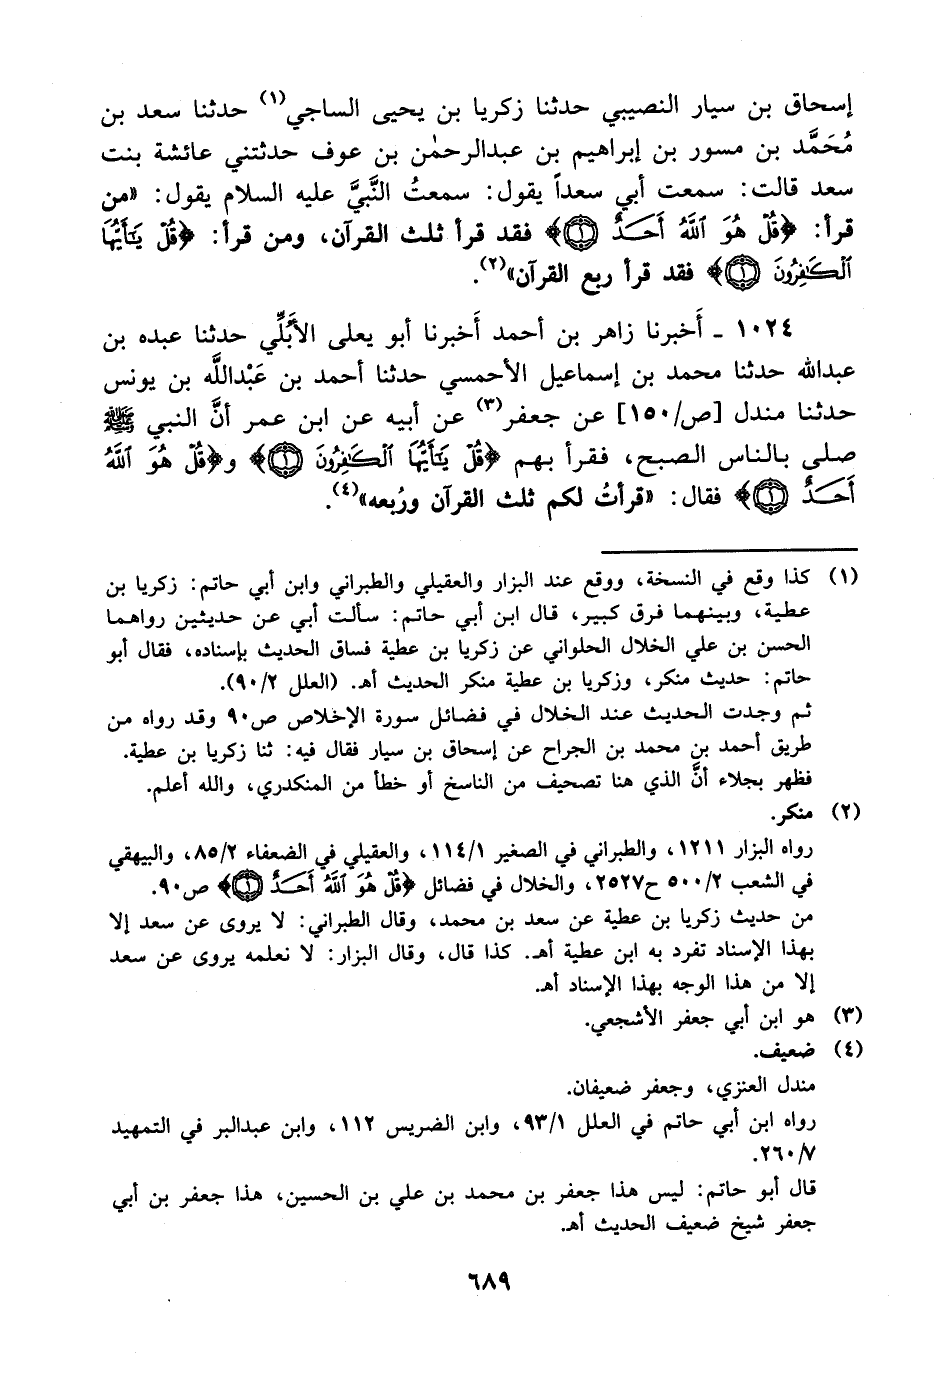 إسحاق بن سيار النصيبي حدثنا زكريا بن يحيى الساجي(١) حدثنا سعد بن
مُحَمَّد بن مسور بن إبراهيم بن عبدالرحمٰن بن عوف حدثتني عائشة بنت
سعد قالت: سمعت أبي سعداً يقول: سمعتُ النَّبيَّ عليه السلام يقول: «من
قرأ: ﴿قُلْ هُوَ ٱللَّهُ أَحَدٌ ١﴾ فقد قرأ ثلث القرآن، ومن قرأ: ﴿قُلْ يَٰٓأَيُّهَا
ٱلْكَٰفِرُونَ ١﴾ فقد قرأ ربع القرآن»(٢).
١٠٢٤ - أَخبرنا زاهر بن أحمد أَخبرنا أبو يعلى الأُبُلِّي حدثنا عبده بن
عبدالله حدثنا محمد بن إسماعيل الأحمسي حدثنا أحمد بن عَبْداللَّه بن يونس
حدثنا مندل [ص/١٥٠] عن جعفر(٣) عن أبيه عن ابن عمر أنَّ النبي ﷺ
صلى بالناس الصبح، فقرأ بهم ﴿قُلْ يَٰٓأَيُّهَا ٱلْكَٰفِرُونَ ١﴾ و﴿قُلْ هُوَ ٱللَّهُ
أَحَدٌ ١﴾ فقال: «قرأتُ لكم ثلث القرآن ورُبعه»(٤).
(١) كذا وقع في النسخة، ووقع عند البزار والعقيلي والطبراني وابن أبي حاتم: زكريا بن
عطية، وبينهما فرق كبير، قال ابن أبي حاتم: سألت أبي عن حديثين رواهما
الحسن بن علي الخلال الحلواني عن زكريا بن عطية فساق الحديث بإسناده، فقال أبو
حاتم: حديث منكر، وزكريا بن عطية منكر الحديث أهـ. (العلل ٩٠/٢).
ثم وجدت الحديث عند الخلال في فضائل سورة الإخلاص ص٩٠ وقد رواه من
طريق أحمد بن محمد بن الجراح عن إسحاق بن سيار فقال فيه: ثنا زكريا بن عطية.
فظهر بجلاء أنَّ الذي هنا تصحيف من الناسخ أو خطأ من المنكدري، والله أعلم.
(٢) منكر.
رواه البزار ١٢١١، والطبراني في الصغير ١١٤/١، والعقيلي في الضعفاء ٨٥/٢، والبيهقي
في الشعب ٥٠٠/٢ ح٢٥٢٧، والخلال في فضائل ﴿قُلْ هُوَ ٱللَّهُ أَحَدٌ ١﴾ ص٩٠.
من حديث زكريا بن عطية عن سعد بن محمد، وقال الطبراني: لا يروى عن سعد إلا
بهذا الإسناد تفرد به ابن عطية أهـ. كذا قال، وقال البزار: لا نعلمه يروى عن سعد
إلا من هذا الوجه بهذا الإسناد أهـ.
(٣) هو ابن أبي جعفر الأشجعي.
(٤) ضعيف.
مندل العنزي، وجعفر ضعيفان.
رواه ابن أبي حاتم في العلل ٩٣/١، وابن الضريس ١١٢، وابن عبدالبر في التمهيد
٢٦٠/٧.
قال أبو حاتم: ليس هذا جعفر بن محمد بن علي بن الحسين، هذا جعفر بن أبي
جعفر شيخ ضعيف الحديث أهـ.
٦٨٩